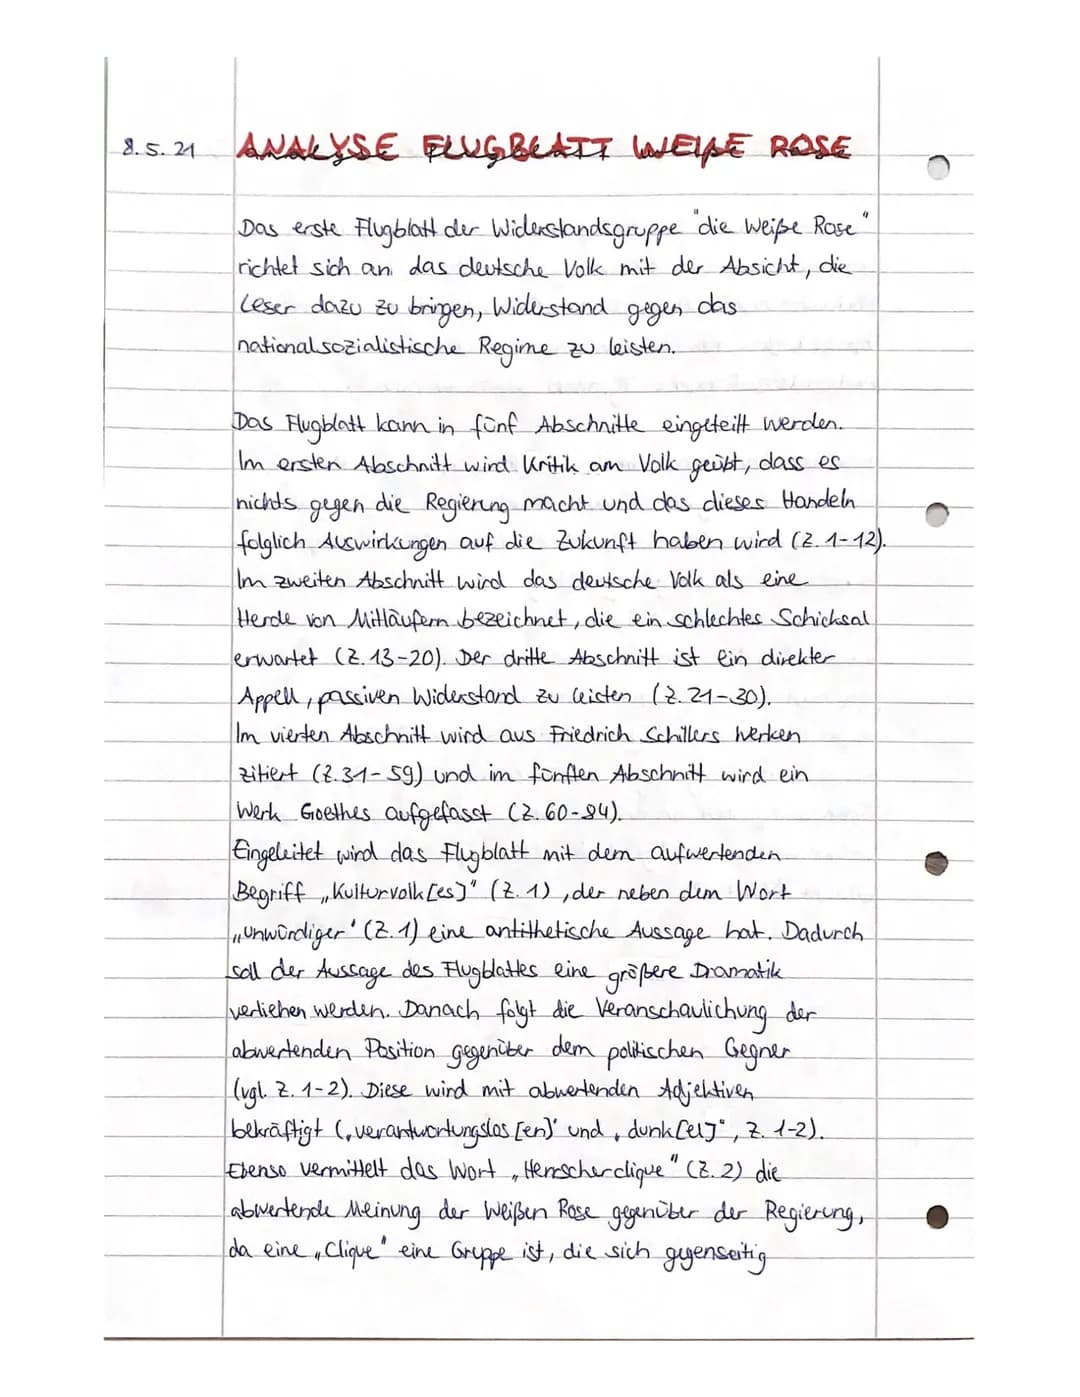 8.5.21 ANALYSE FLUGBLATT WEIßE ROSE
Das erste Flugblatt der Widerstandsgruppe "die Weiße Rose"
richtet sich an das deutsche Volk mit der Absicht, die
Leser dazu zu bringen, Widerstand gegen das
nationalsozialistische Regime zu leisten.
Das Flugblatt kann in fünf Abschnitte eingeteilt werden.
Im ersten Abschnitt wird Kritik am Volk geübt, dass es
nichts gegen die Regierung macht und das dieses Handeln
folglich Auswirkungen auf die Zukunft haben wird (Z. 1-12).
Im zweiten Abschnitt wird das deutsche Volk als eine
Herde von Mitläufern bezeichnet, die ein schlechtes Schicksal
erwartet (Z. 13-20). Der dritte Abschnitt ist ein direkter
Appell, passiven Widerstand zu leisten (Z. 21-30).
Im vierten Abschnitt wird aus Friedrich Schillers Werken
zitiert (Z. 31-59) und im fünften Abschnitt wird ein
Werk Goethes aufgefasst (Z. 60-84).
Eingeleitet wird das Flugblatt mit dem aufwertenden
Begriff „Kulturvolk[es]" (Z. 1), der neben dem Wort
„unwürdiger" (Z. 1) eine antithetische Aussage hat. Dadurch
soll der Aussage des Flugblattes eine größere Dramatik
verliehen werden. Danach folgt die Veranschaulichung der
abwertenden Position gegenüber dem politischen Gegner
(vgl. Z. 1-2). Diese wird mit abwertenden Adjektiven
bekräftigt („verantwortungslos[en]" und „dunk[el]", Z. 1-2).
Ebenso vermittelt das Wort „Herrscherclique" (Z. 2) die
abwertende Meinung der Weißen Rose gegenüber der Regierung,
da eine „Clique" eine Gruppe ist, die sich gegenseitig